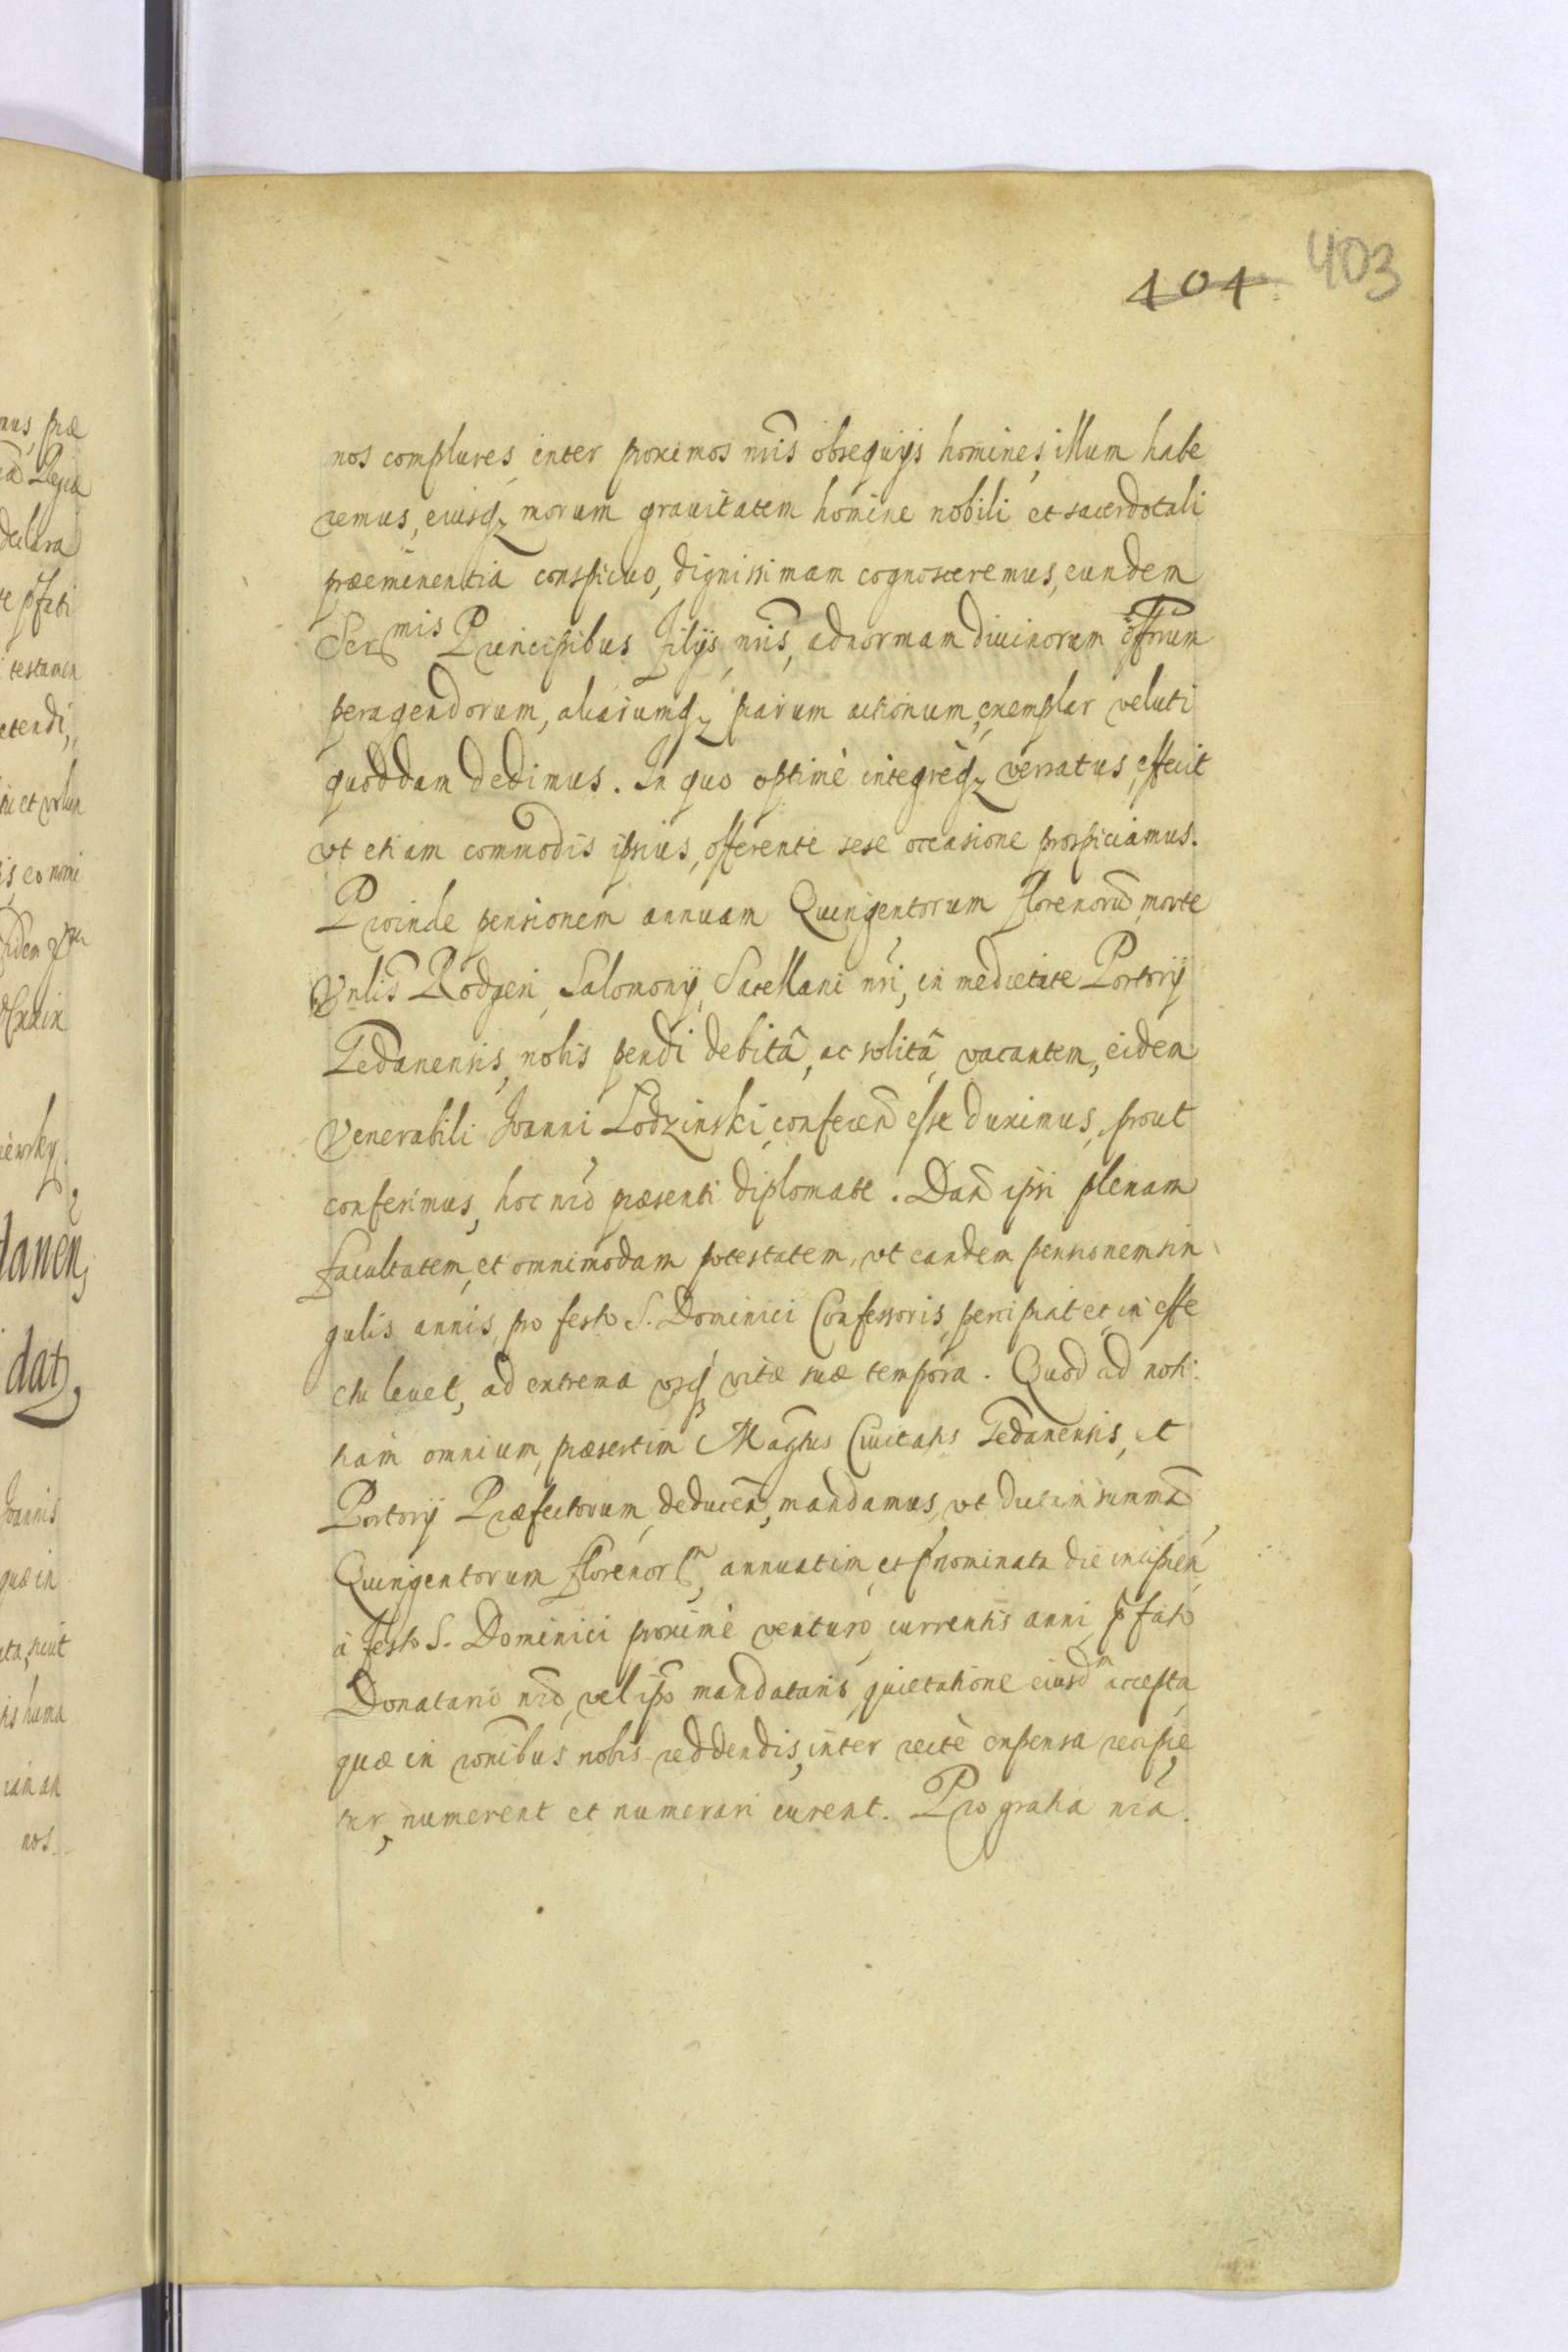 403
404
nos complures, inter proximos nris obsequijs homines, illum habe
remus, eiusq; morum grauitatem homine nobili et sacerdotali
præeminentia conspicuo, dignissimam cognosceremus, eundem
Sermis Principibus Filijs nris, ad normam diuinorum offrum
peragendorum, aliarumq; piarum actionum, exemplar veluti
quoddam dedimus. In quo optimè integrèq; versatus, effecit
vt etiam commodis ipsius, offerente sese occasione prospiciamus.
Proinde pensionem annuam Quingentorum florenorũ, morte
Vnlis Rodgeri Salomonij, Sacellani nri, in medietate Portorij
Gedanensis, nobis pendi debitâ, ac solitâ, vacantem, eidem
Venerabili Joanni Lodzinski, conferen̄ esse duximus, prout
conferimus, hoc nro præsenti diplomate. Dan̄ ipsi plenam
facultatem, et omnimodam potestatem, vt eandem pensionem sin
gulis annis, pro festo S. Dominici Confessoris, percipiat et in effe
ctu leuet, ad extrema vsq; vitæ suæ tempora. Quod ad noti:
tiam omnium, præsertim Magtus Ciuitatis Gedanensis, et
Portorij Præfectorum, deducen̄, mandamus, vt dictam summã
Quingentorum florenorũ, annuatim, et pnominata die incipien̄
à festo S. Dominici proximè venturo, currentis anni, pfato
Donatario nro, vel ipso mandatario, quietatione eiusdm accepta
quæ in ronibus nobis reddendis, inter rectè expensa recipie
tur, numerent et numerari curent. Pro gratia nra.